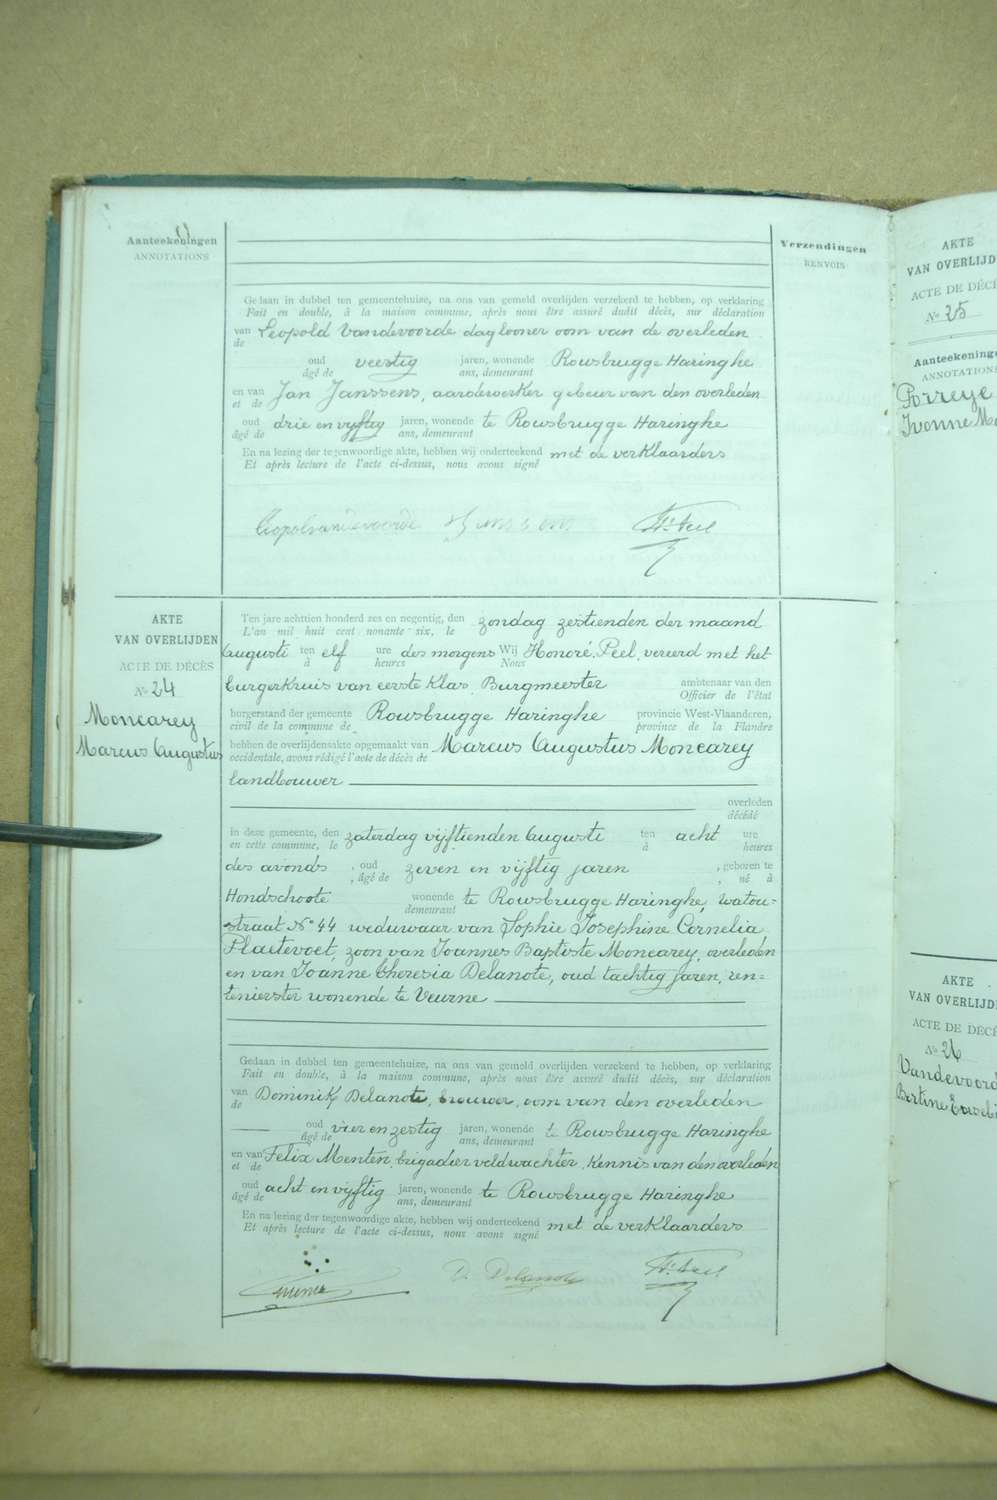 Aanteekeningen
ANNOTATIONS
Verzendingen
RENVOIS
Gedaan in dubbel ten gemeentehuize, na ons van gemeld overlijden verzekerd te hebben, op verklaring
Fait en double, à la maison commune, après nous être assuré dudit décès, sur déclaration
van Leopold Vandevoorde daglooner oom van de overleden
de
oud veertig jaren, wonende Rousbrugge Haringhe
âgé de ans, demeurant
en van Jan Janssens, aardewerker gebuur van den overleden
et de
oud drie en vyftig jaren, wonende te Rousbrugge Haringhe
âgé de ans, demeurant
En na lezing der tegenwoordige akte, hebben wij onderteekend met de verklaarders
Et après lecture de l'acte ci-dessus, nous avons signé
Leopol vandevoorde H. Peel
AKTE
VAN OVERLIJDEN
ACTE DE DÉCÈS
No 24
Moncarey
Marcus Augustus
Ten jare achttien honderd zes en negentig, den zondag zestienden der maand
L'an mil huit cent nonante-six, le
Augusti ten elf ure des morgens Wij Honoré Peel, vereerd met het
à heures Nous
burgerkruis van eerste klas, Burgmeester ambtenaar van den
Officier de l'état
burgerstand der gemeente Rousbrugge Haringhe provincie West-Vlaanderen,
civil de la commune de province de la Flandre
hebben de overlijdensakte opgemaakt van Marcus Augustus Moncarey
occidentale, avons rédigé l'acte de décès de
landbouwer
overleden
décédé
in deze gemeente, den zaterdag vijftienden Augusti ten acht ure
en cette commune, le à heures
des avonds, oud zeven en vijftig jaren, geboren te
, âgé de , né à
Hondschoote wonende te Rousbrugge Haringhe, watou-
demeurant
straat No 44 weduwaar van Sophie Josephine Cornelia
Plaetevoet, zoon van Joannes Baptiste Moncarey, overleden
en van Joanne Theresia Delanote, oud tachtig jaren, ren=
tenierster wonende te Veurne
Gedaan in dubbel ten gemeentehuize, na ons van gemeld overlijden verzekerd te hebben, op verklaring
Fait en double, à la maison commune, après nous être assuré dudit décès, sur déclaration
van Dominik Delanote, brouwer, oom van den overleden
de
oud vier en zestig jaren, wonende te Rousbrugge Haringhe
âgé de ans, demeurant
en van Felix Menten brigadier veldwachter, kennis van den overleden
et de
oud acht en vyftig jaren, wonende te Rousbrugge Haringhe
âgé de ans, demeurant
En na lezing der tegenwoordige akte, hebben wij onderteekend met de verklaarders
Et après lecture de l'acte ci-dessus, nous avons signé
D. Delanote H. Peel
AKTE
VAN OVERLIJD
ACTE DE DÉCÈ
No 25
Aanteekeninge
ANNOTATIONS
Porreye
Ivonne Ma
AKTE
VAN OVERLIJD
ACTE DE DÉCÈ
No 26
Vandevoord